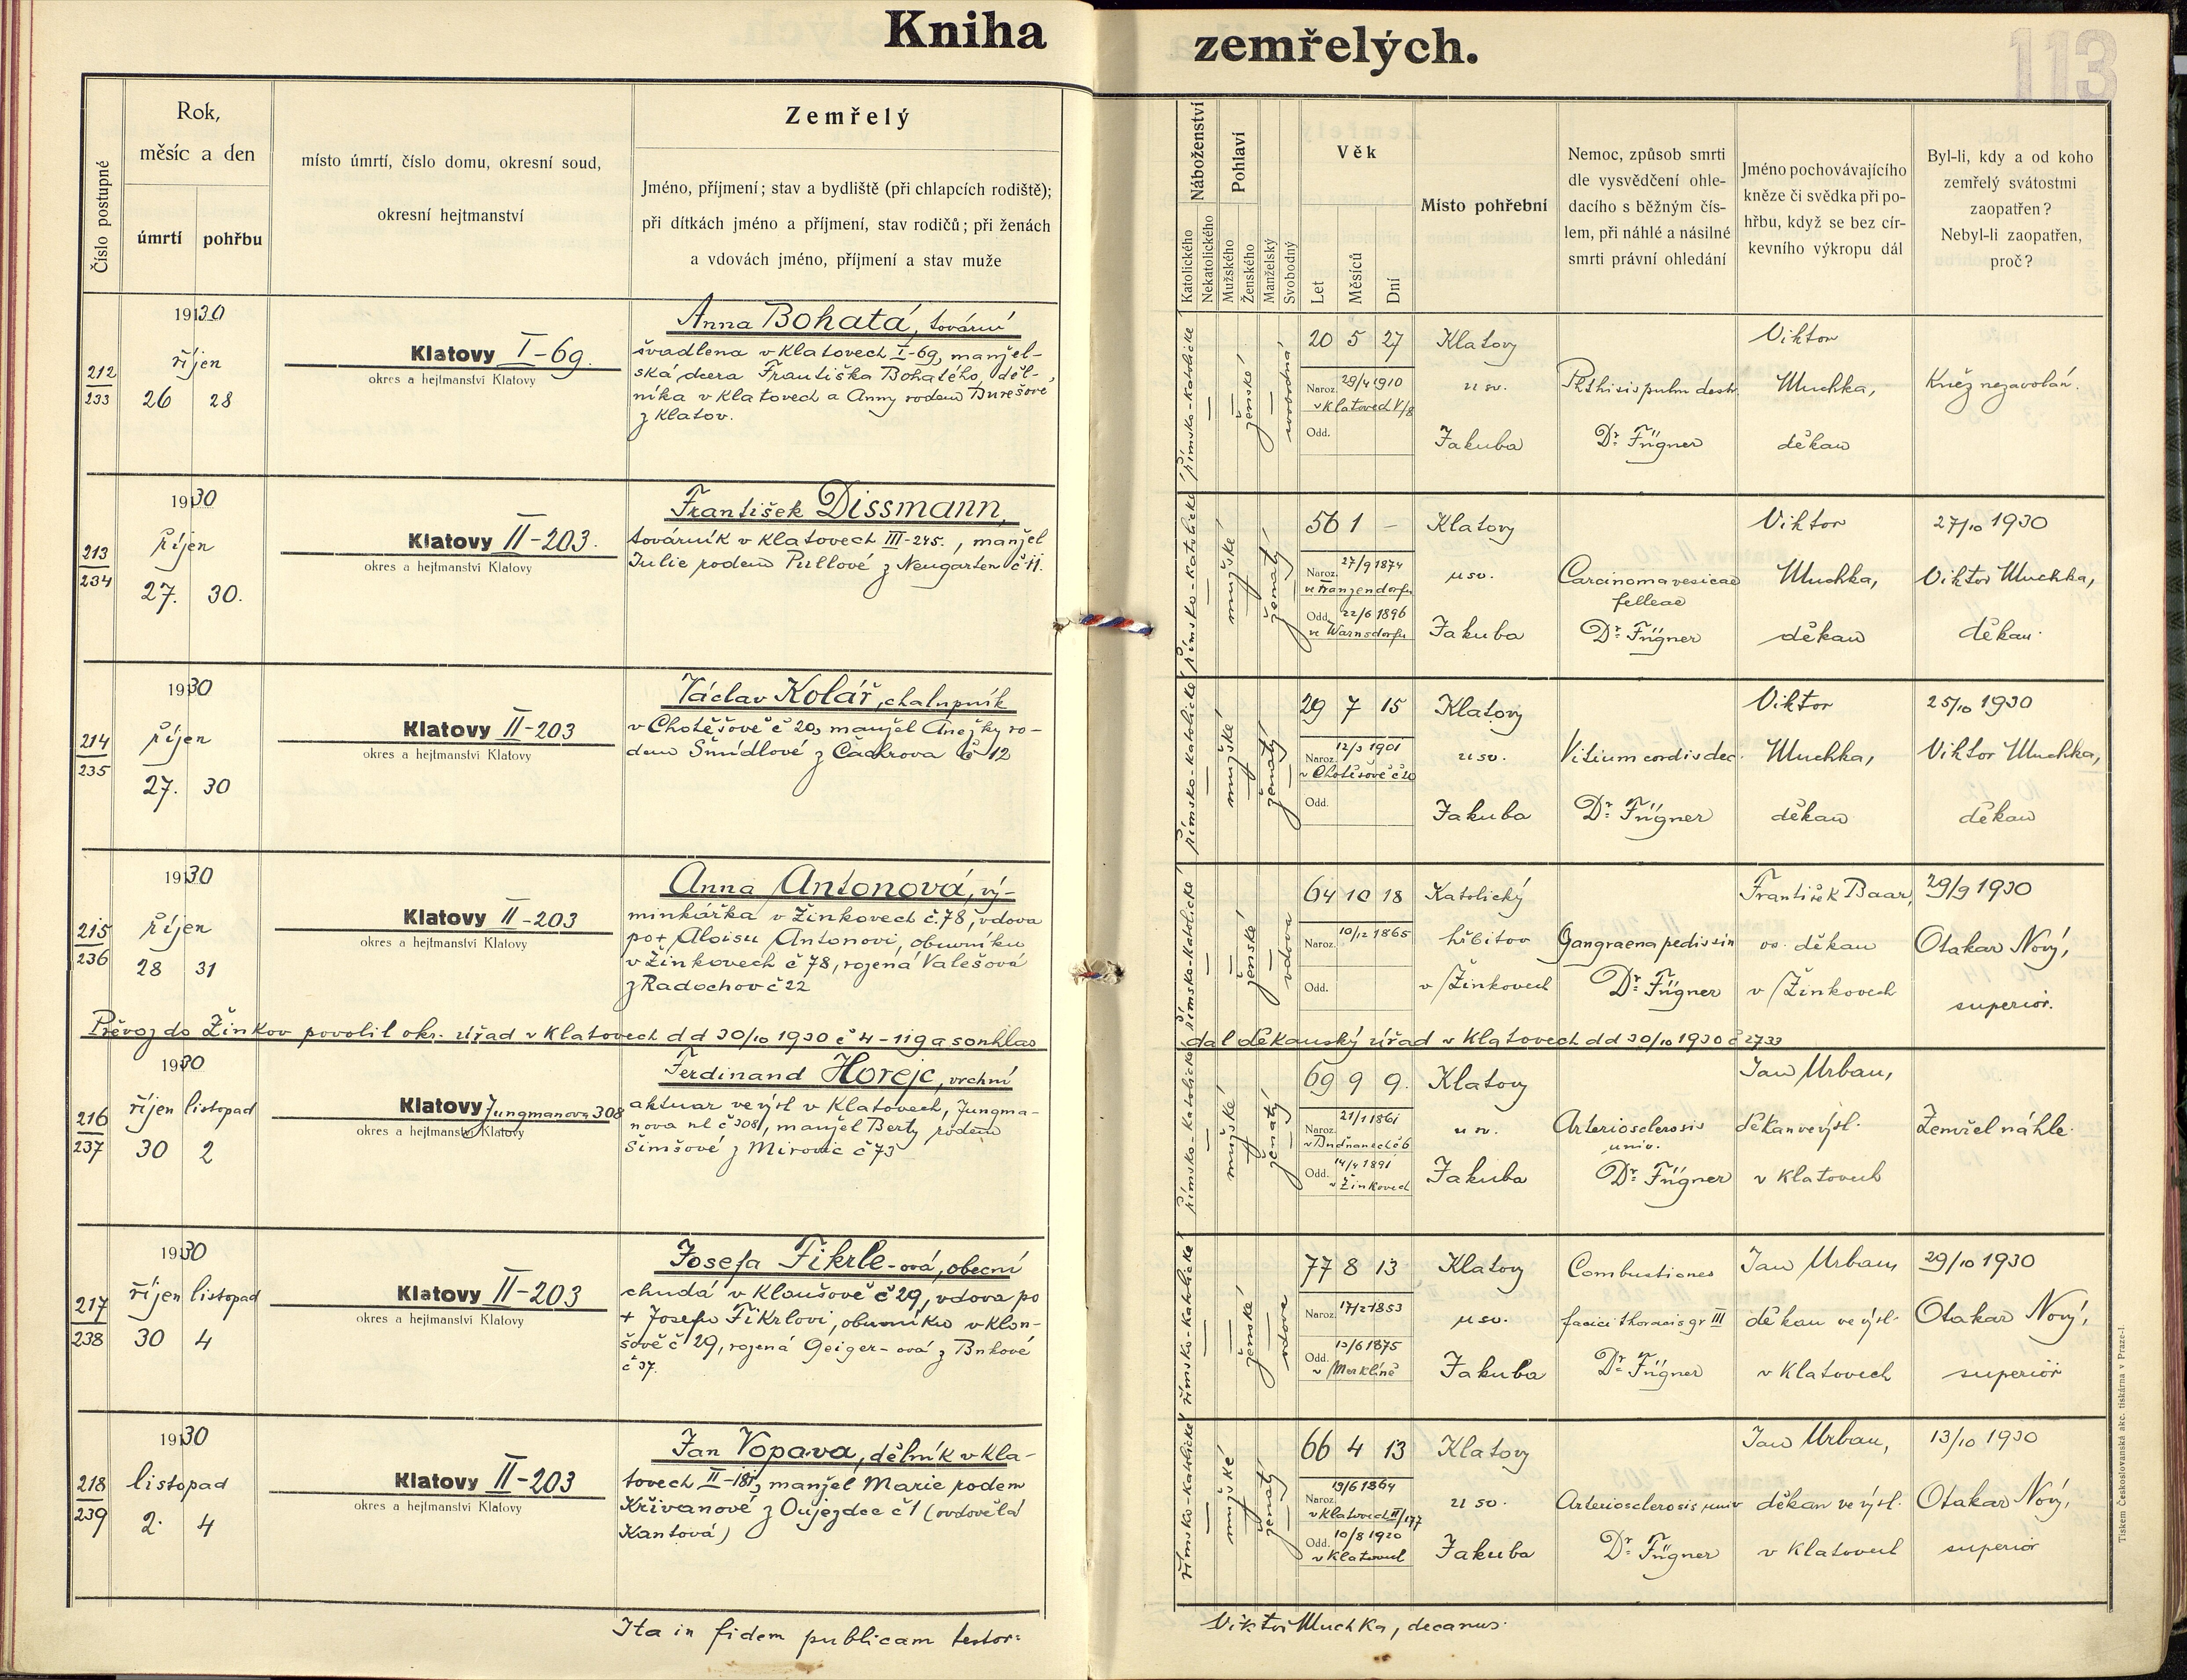 Kniha zemřelých.
113
Číslo postupné
Rok,
měsíc a den
úmrtí
pohřbu
místo úmrtí, číslo domu, okresní soud,
okresní hejtmanství
Zemřelý
Jméno, příjmení; stav a bydliště (při chlapcích rodiště);
při dítkách jméno a příjmení, stav rodičů; při ženách
a vdovách jméno, příjmení a stav muže
Náboženství
Katolického
Nekatolického
Pohlaví
Mužského
Ženského
Manželský
Svobodný
Věk
Let
Měsíců
Dní
Místo pohřební
Nemoc, způsob smrti
dle vysvědčení ohle-
dacího s běžným čís-
lem, při náhlé a násilné
smrti právní ohledání
Jméno pochovávajícího
kněze či svědka při po-
hřbu, když se bez cír-
kevního výkropu dál
Byl-li, kdy a od koho
zemřelý svátostmi
zaopatřen?
Nebyl-li zaopatřen,
proč?
212
233
1930
říjen
26 28
Klatovy I-69.
okres a hejtmanství Klatovy
Anna Bohatá, tovární
švadlena v Klatovech I-69, manžel-
ská dcera Františka Bohatého, děl-
níka v Klatovech a Anny rodem Burešové
z Klatov.
římsko-katolické
ženské
svobodná
20 5 27
Naroz. 29/4 1910
v Klatovech V/8
Odd.
Klatovy
u sv.
Jakuba
Phthisis pulm destr.
Dr. Fügner
Viktor
Muchka,
děkan
Kněz nezavolán.
213
234
1930
říjen
27. 30.
Klatovy II-203.
okres a hejtmanství Klatovy
František Dissmann,
továrník v Klatovech III-245., manžel
Julie rodem Pullové z Neugarten č 11.
římsko-katolické
mužské
ženatý
56 1 -
Naroz. 27/9 1874
ve Franzendorfu
Odd. 22/6 1896
ve Warnsdorfu
Klatovy
u sv.
Jakuba
Carcinoma vesicae
felleae
Dr. Fügner
Viktor
Muchka,
děkan
27/10 1930
Viktor Muchka,
děkan.
214
235
1930
říjen
27. 30
Klatovy II-203
okres a hejtmanství Klatovy
Václav Kolář, chalupník
v Chotěšově č 20, manžel Anežky ro-
dem Šmídlové z Čachrova č 12
římsko-katolické
mužské
ženatý
29 7 15
Naroz. 12/3 1901
v Chotěšově č 20
Odd.
Klatovy
u sv.
Jakuba
Vitium cordis dec.
Dr. Fügner
Viktor
Muchka,
děkan
25/10 1930
Viktor Muchka,
děkan
215
236
1930
říjen
28 31
Klatovy II-203
okres a hejtmanství Klatovy
Anna Antonová, vý-
minkářka v Žinkovech č. 78, vdova
po + Aloisu Antonovi, obuvníku
v Žinkovech č 78, rozená Valešová
z Radochov č 22
římsko-katolické
ženské
vdova
64 10 18
Naroz. 10/12 1865
Odd.
Katolický
hřbitov
v Žinkovech
Gangraena pedis sin
Dr. Fügner
František Baar,
os. děkan
v Žinkovech
29/9 1930
Otakar Nový,
superior.
Převoz do Žinkov povolil okr. úřad v Klatovech dd 30/10 1930 č 4-119 a souhlas
dal děkanský úřad v Klatovech dd 30/10 1930 č 2733
216
237
1930
říjen listopad
30 2
Klatovy Jungmanova 308
okres a hejtmanství Klatovy
Ferdinand Horejc, vrchní
aktuar ve výsl v Klatovech, Jungma-
nova ul č 308, manžel Berty rodem
Šimšové z Mirovic č 73
římsko-katolické
mužské
ženatý
69 9 9.
Naroz. 21/1 1861
Odd. 14/4 1891
v Žinkovech
Klatovy
u sv.
Jakuba
Arteriosclerosis
univ.
Dr. Fügner
Jan Urban,
děkan ve výsl.
v Klatovech
Zemřel náhle.
217
238
1930
říjen listopad
30 4
Klatovy II-203
okres a hejtmanství Klatovy
Josefa Fikrle-ová, obecní
chudá v Kloušově č 29, vdova po
+ Josefu Fikrlovi, obuvníku v Klou-
šově č 29, rozená Geiger-ová z Bukové
č 37.
římsko-katolické
ženské
vdova
77 8 13
Naroz. 17/2 1853
Odd. 13/6 1875
v Merklíně
Klatovy
u sv.
Jakuba
Combustiones
faciei thoracis gr III
Dr. Fügner
Jan Urban,
děkan ve výsl.
v Klatovech
29/10 1930
Otakar Nový,
superior
218
239
1930
listopad
2. 4
Klatovy II-203
okres a hejtmanství Klatovy
Jan Vopava, dělník v Kla-
tovech II-181, manžel Marie rodem
Křivanové z Oujezdce č 1 (ovdovělá
Kantová)
římsko-katolické
mužské
ženatý
66 4 13
Naroz. 19/6 1864
v Klatovech II/177
Odd. 10/8 1920
v Klatovech
Klatovy
u sv.
Jakuba
Arteriosclerosis univ
Dr. Fügner
Jan Urban,
děkan ve výsl.
v Klatovech
13/10 1930
Otakar Nový,
superior
Ita in fidem publicam testor:
Viktor Muchka, decanus.
Tiskem Československá akc. tiskárna v Praze-I.